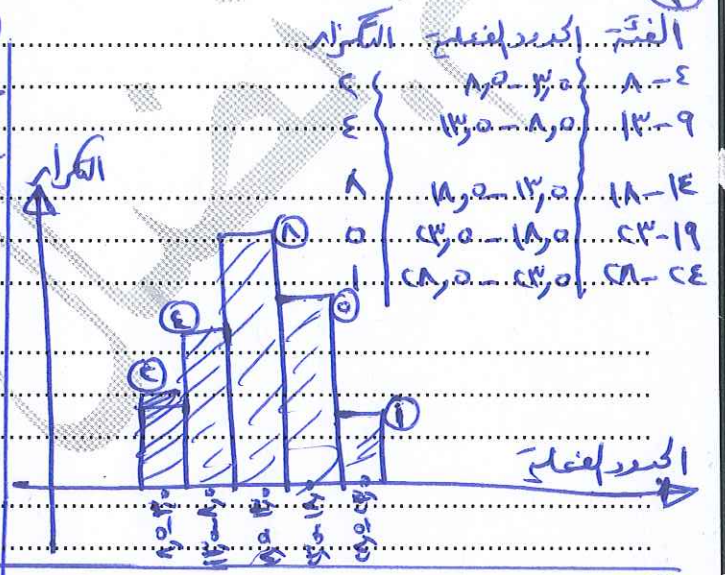 الفئة الحدود الفعلية التكرار
٤-٨ ٣,٥-٨,٥ ٢
٩-١٣ ٨,٥-١٣,٥ ٤
١٤-١٨ ١٣,٥-١٨,٥ ٨
١٩-٢٣ ١٨,٥-٢٣,٥ ٥
٢٤-٢٨ ٢٣,٥-٢٨,٥ ١
التكرار
٨
٥
٤
٢
١
الحدود الفعلية
٣,٥-٨,٥
٨,٥-١٣,٥